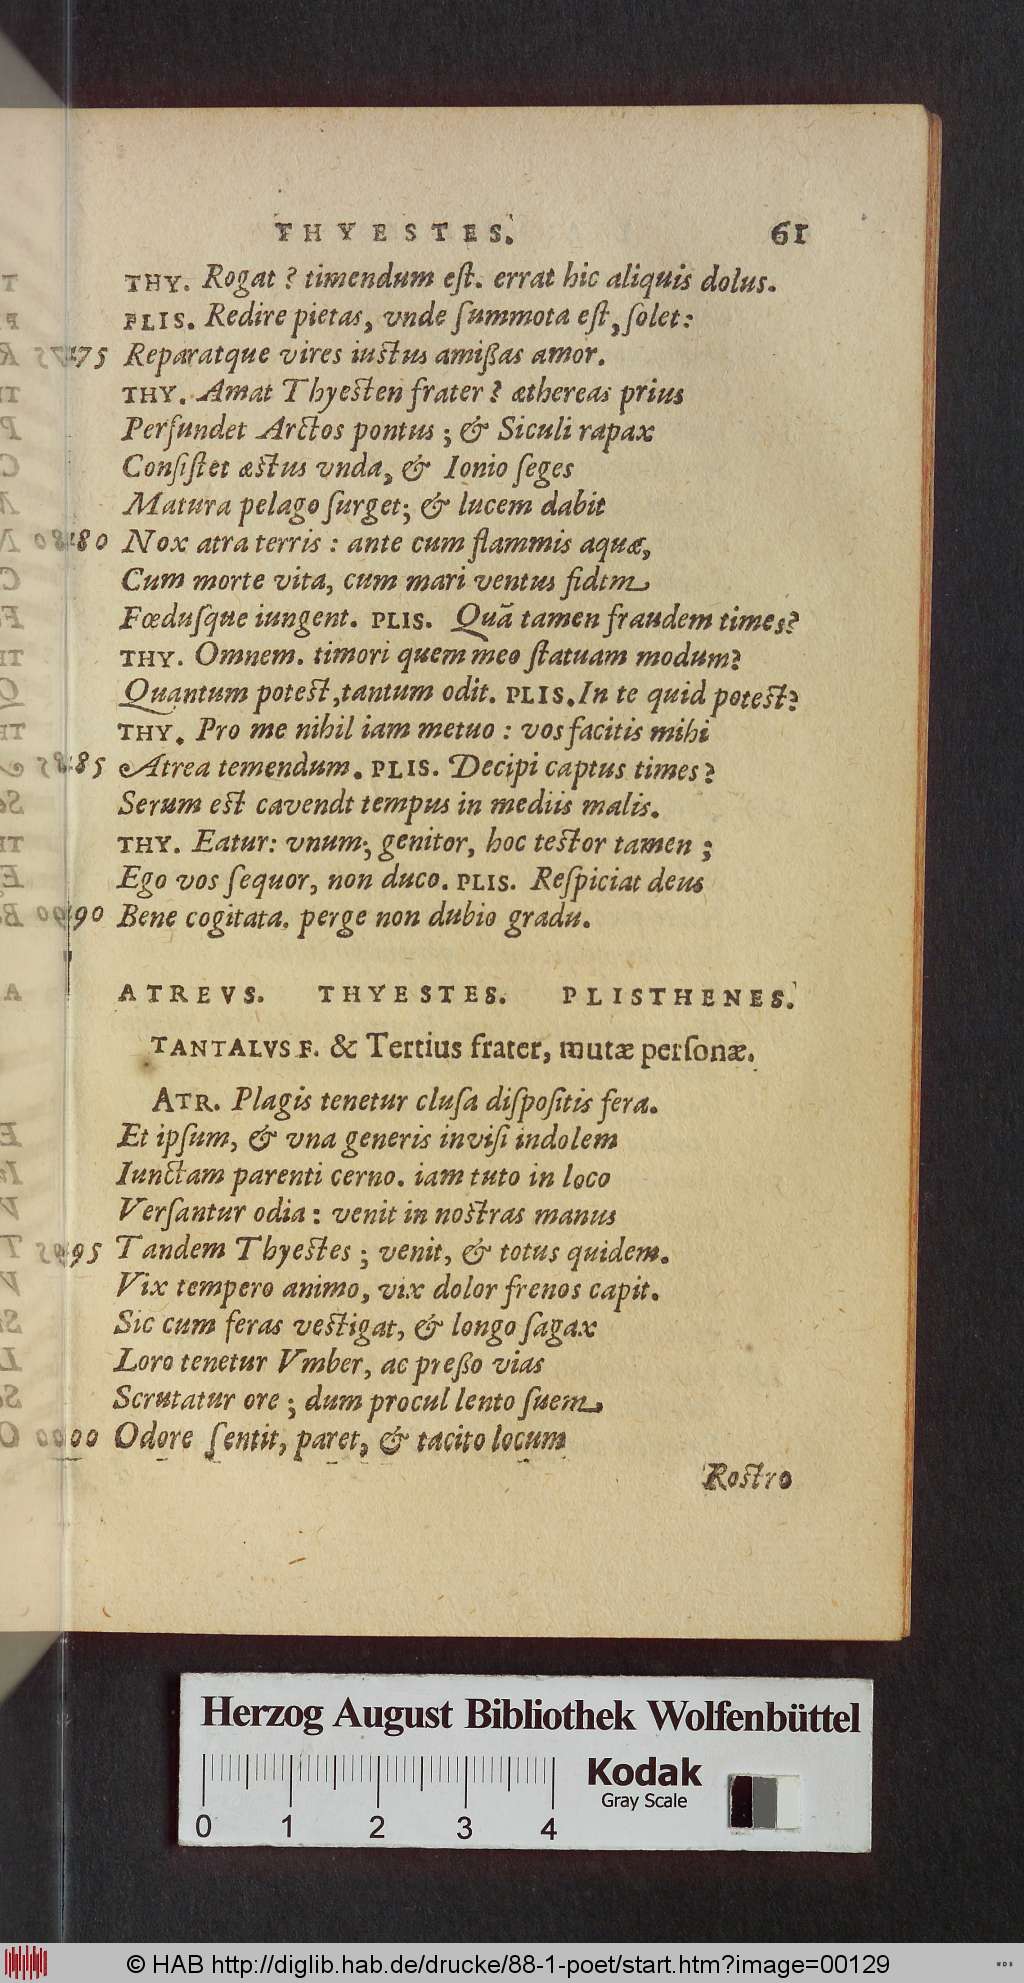 THYESTES. 61
THY. Rogat? timendum est. errat hic aliquis dolus.
PLIS. Redire pietas, vnde summota est, solet:
175 Reparatque vires iustus amißas amor.
THY. Amat Thyesten frater? æthereas prius
Perfundet Arctos pontus; & Siculi rapax
Consistet æstus vnda, & Ionio seges
Matura pelago surget; & lucem dabit
180 Nox atra terris: ante cum flammis aquæ,
Cum morte vita, cum mari ventus fidem
Fœdusque iungent. PLIS. Quã tamen fraudem times?
THY. Omnem. timori quem meo statuam modum?
Quantum potest, tantum odit. PLIS. In te quid potest?
THY. Pro me nihil iam metuo: vos facitis mihi
185 Atrea temendum. PLIS. Decipi captus times?
Serum est cavendt tempus in mediis malis.
THY. Eatur: vnum; genitor, hoc testor tamen;
Ego vos sequor, non duco. PLIS. Respiciat deus
90 Bene cogitata. perge non dubio gradu.
ATREVS. THYESTES. PLISTHENES.
TANTALVS F. & Tertius frater, mutæ personæ.
ATR. Plagis tenetur clusa dispositis fera.
Et ipsum, & vna generis invisi indolem
Iunctam parenti cerno. iam tuto in loco
Versantur odia: venit in nostras manus
95 Tandem Thyestes; venit, & totus quidem.
Vix tempero animo, vix dolor frenos capit.
Sic cum feras vestigat, & longo sagax
Loro tenetur Vmber, ac preßo vias
Scrutatur ore; dum procul lento suem
00 Odore sentit, paret, & tacito locum
Rostro
Herzog August Bibliothek Wolfenbüttel
Kodak
Gray Scale
0 1 2 3 4
© HAB http://diglib.hab.de/drucke/88-1-poet/start.htm?image=00129